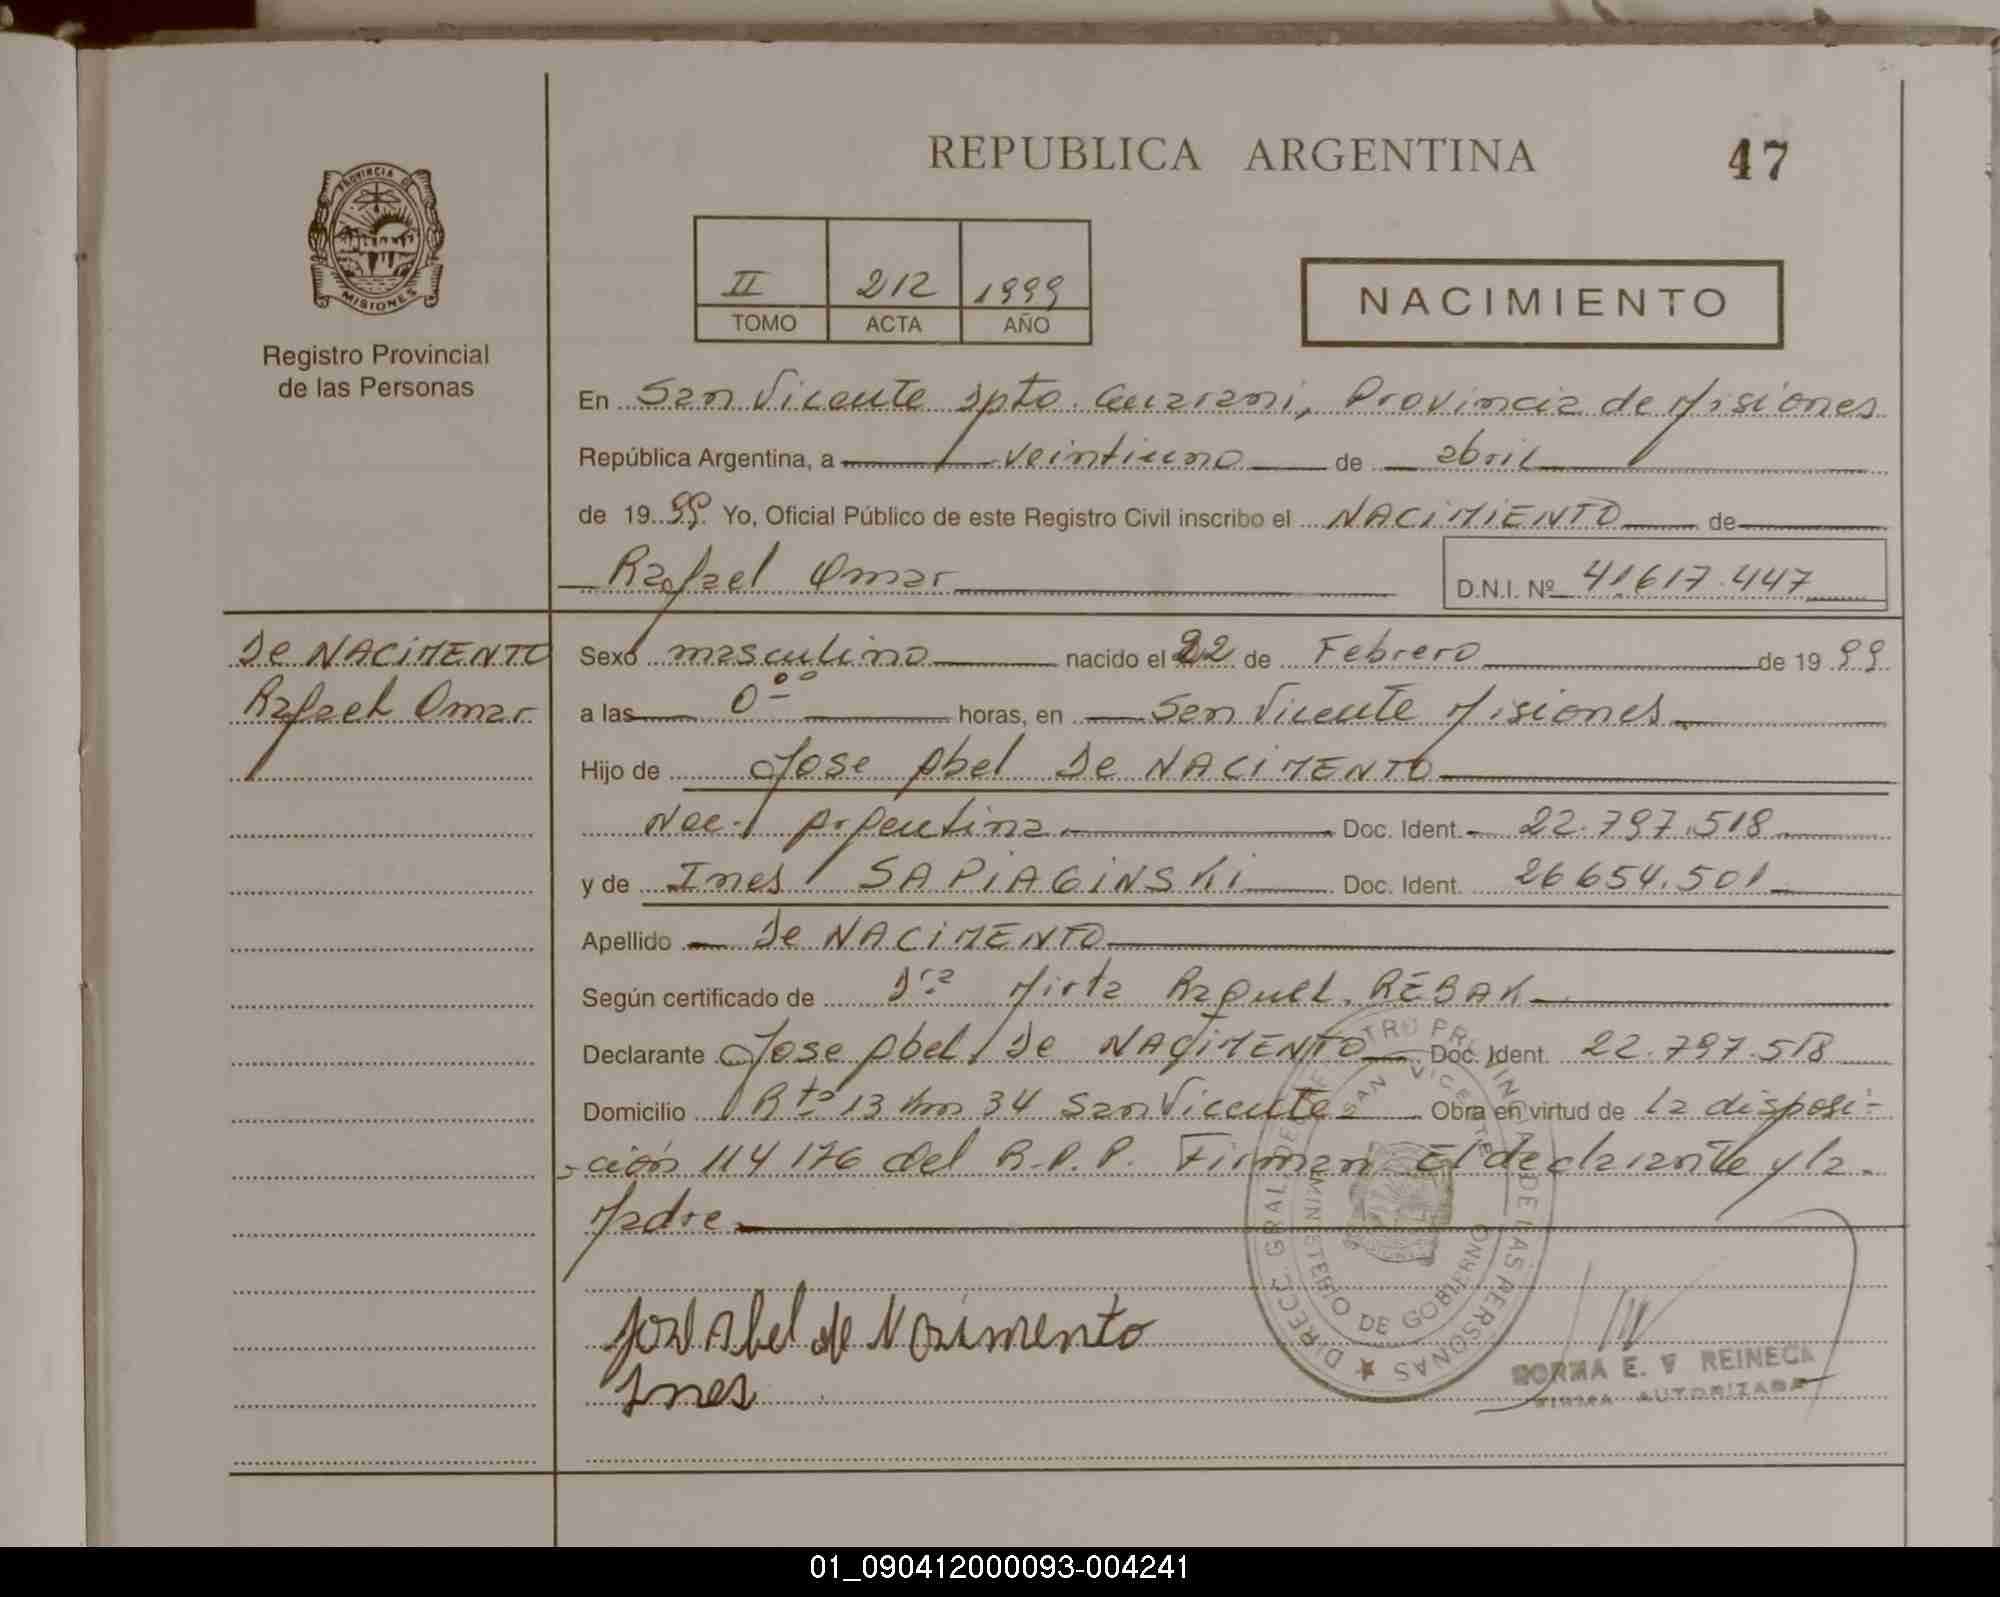 REPUBLICA ARGENTINA
47
PROVINCIA DE
MISIONES
Registro Provincial
de las Personas
II 212 1999
TOMO ACTA AÑO
NACIMIENTO
En San Vicente Dpto. Guarani, Provincia de Misiones
República Argentina, a veintiuno de abril
de 1999 Yo, Oficial Público de este Registro Civil inscribo el NACIMIENTO de
Rafael Omar D.N.I. Nº 41.617.447
De NACIMENTO
Rafael Omar
Sexo masculino nacido el 22 de Febrero de 1999
a las 0°° horas, en San Vicente Misiones
Hijo de Jose Abel De NACIMENTO
Nac. Argentina Doc. Ident. 22.797.518
y de Ines SAPIAGINSKi Doc. Ident. 26654.501
Apellido De NACIMENTO
Según certificado de Dra Mirta Raquel REBAK
Declarante Jose Abel De NACIMENTO Doc. Ident. 22.797.518
Domicilio Rta 13 km 34 San Vicente Obra en virtud de la disposi-
ción 114 176 del R.P.P. Firman El declarante y la
Madre
DIRECC. GRAL. DEL REGISTRO PROVINCIAL DE LAS PERSONAS
SAN VICENTE
MINISTERIO DE GOBIERNO
José Abel de Nacimento
Ines
NORMA E. V REINECK
FIRMA AUTORIZADA
01_090412000093-004241